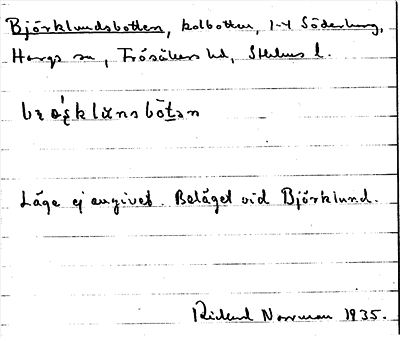 Björklundsbotten, kolbotten, 1-4 Söderberg,
Hargs sn, Frösåkers hd, Sthlms l.
Läge ej angivet. Beläget vid Björklund.
Rickard Norrman 1935.